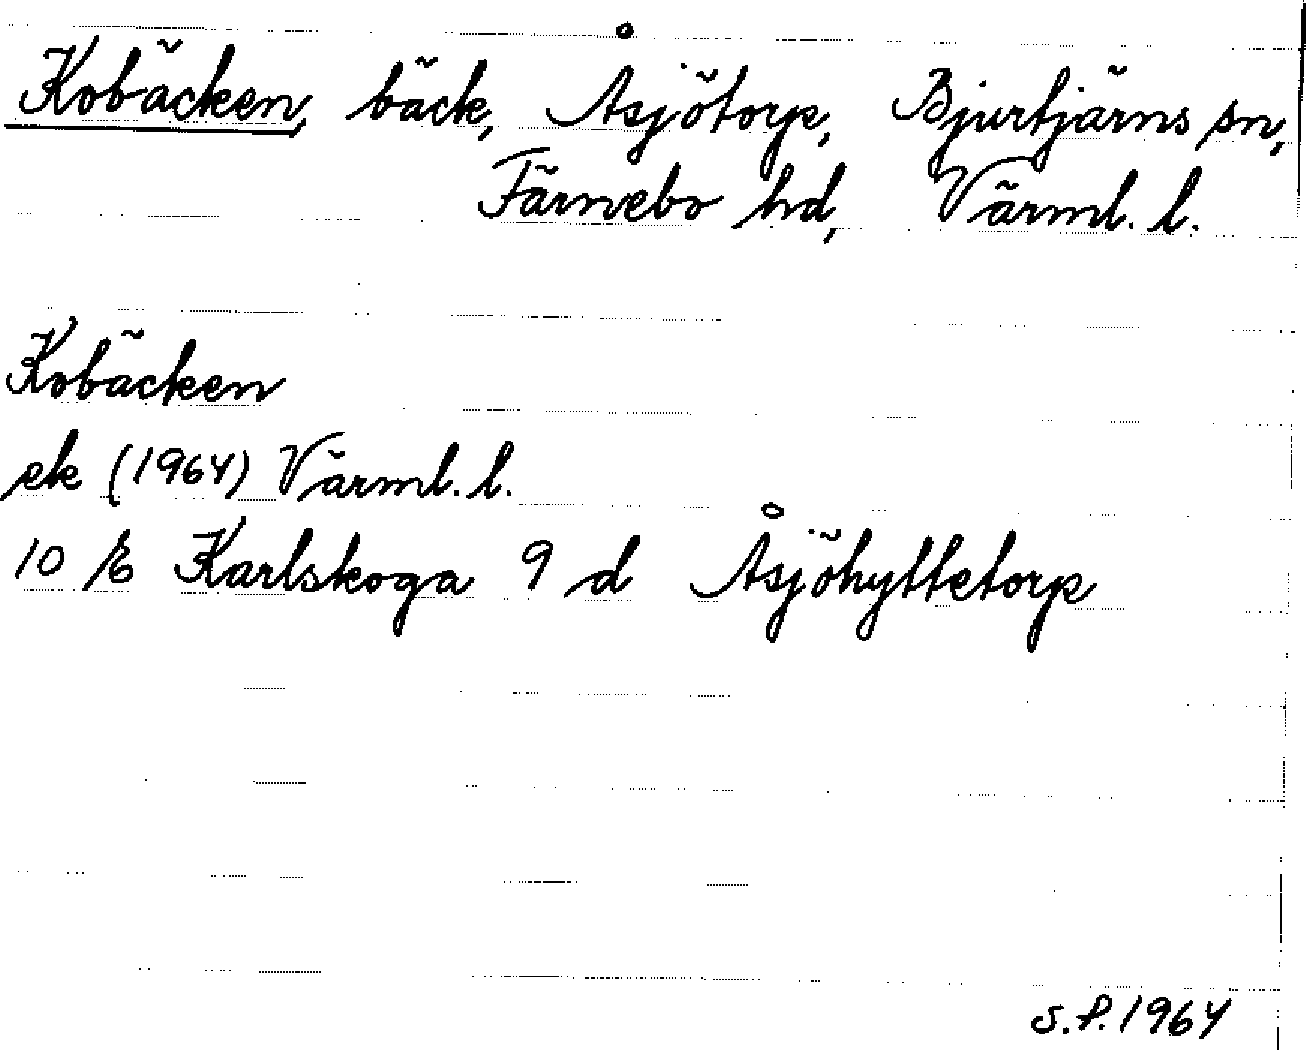 Kobäcken, bäck, Åsjötorp, Bjurtjärns sn,
Färnebo hd, Värml. l.
Kobäcken
ek (1964) Värml. l.
10 E Karlskoga 9 d Åsjöhyttetorp
S.P. 1964